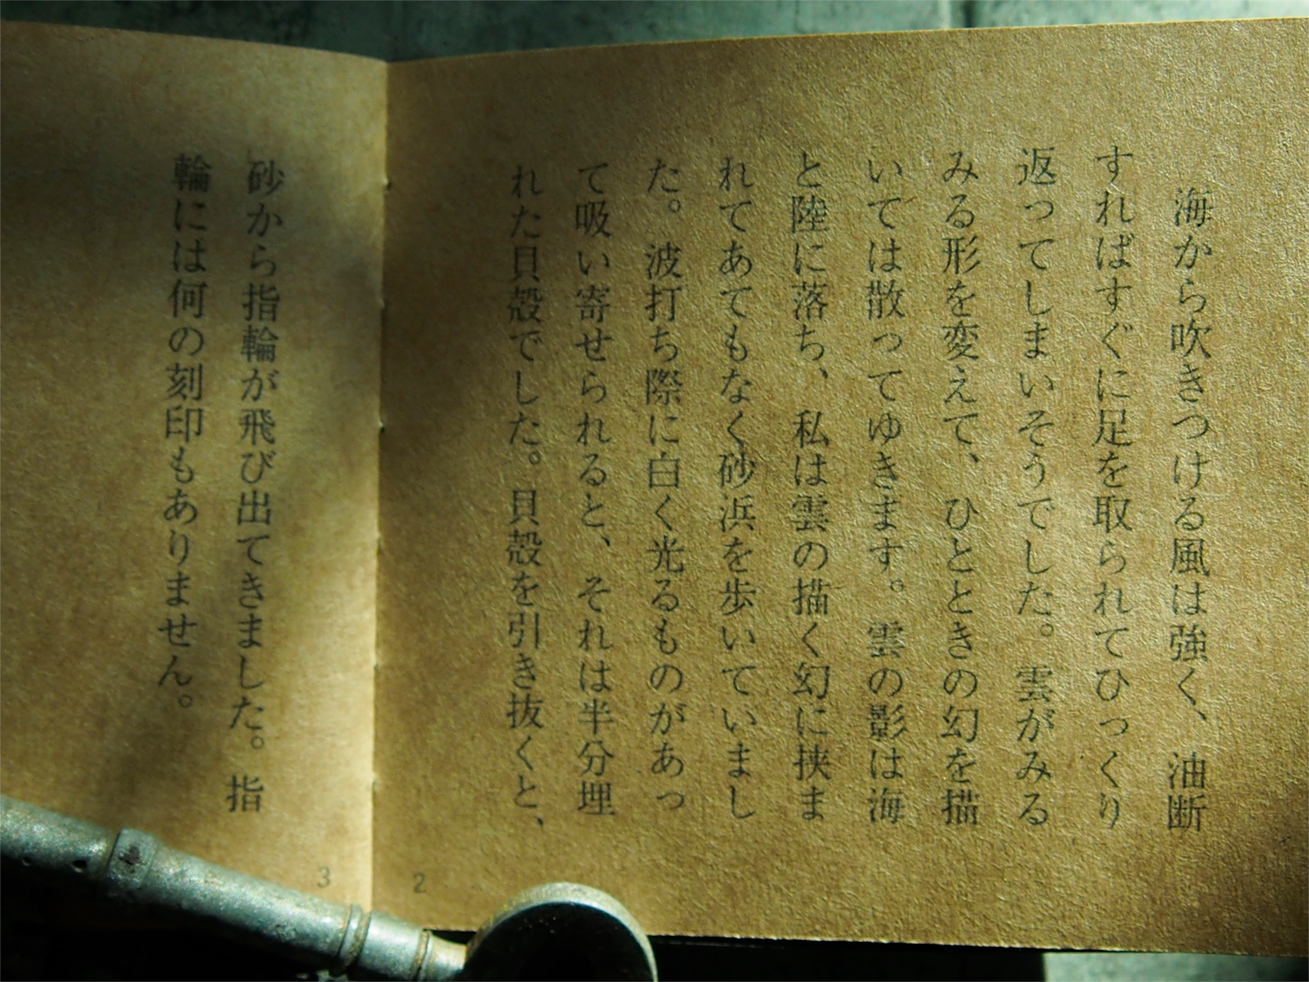 海から吹きつける風は強く、油断
すればすぐに足を取られてひっくり
返ってしまいそうでした。雲がみる
みる形を変えて、ひとときの幻を描
いては散ってゆきます。雲の影は海
と陸に落ち、私は雲の描く幻に挟ま
れてあてもなく砂浜を歩いていまし
た。波打ち際に白く光るものがあっ
て吸い寄せられると、それは半分埋
れた貝殻でした。貝殻を引き抜くと、
2
砂から指輪が飛び出てきました。指
輪には何の刻印もありません。
3